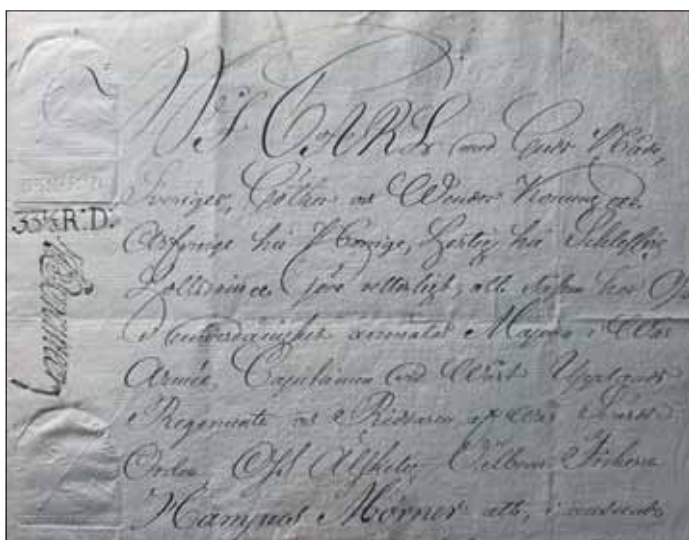 Wi CARL med Guds Nåde,
Sveriges, Göthes och Wendes Konung &c.
Arfvinge till Norrige, Hertig till Schlesvig
Hollstein &c. göre vetterligt, att såsom hos Oss
i underdånighet anmälts Majoren i Wår
Armée, Capitainen vid Wårt Upplands
Regemente och Riddaren af Wår Svärds
Orden Oss Älskelig, Välborne Friherre
Hampus Mörner att, i
33⅓ R:D.